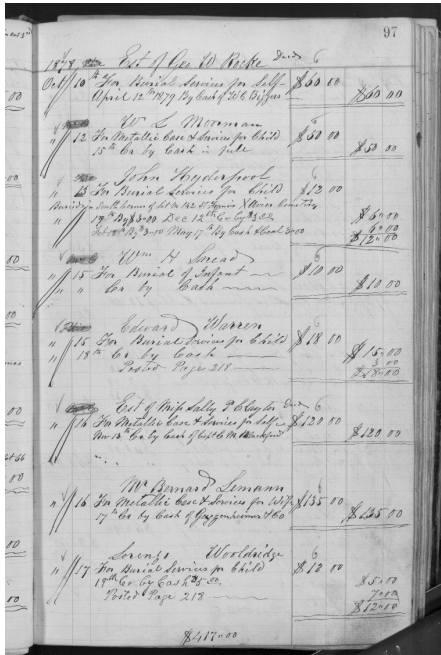 97
1878 Est of Geo D Rocke Decd 6
Octr 10th For Burial Services for Self $60 00
April 12th 1879 By Cash of W C Biggers $60 00
W L Moorman 6
" 12 For Metallic Case & Servies for Child $50 00
15th Cr by Cash in full $50 00
John Hyderpool 6
" 15 For Burial Services for Child $12 00
Buried in South of lot N 142 St Cemetery
19th By $3=00 Dec 12th Cr by $3.00 $6=00
Feb By $3=00 May 17th By Cash 3=00 6=00
$12=00
Wm H Snead 6
" 15 For Burial of Infant $10 00
" " Cr by Cash $10 00
Edward Warren 6
" 15 For Burial Servises for Child $18 00
" 18th Cr by Cash $15=00
Posted Page 218 3 00
$18=00
Est of Miss Sally P Clayton Decd 6
" 16 For Metallic Case & Services for Self $120 00
Nov 13th Cr by Cash of Capt C M Blackford $120 00
Mr Bernard Lemann 6
" 16 For Metallic Case & Services for Wife $135 00
17th Cr by Cash of Guggenheimer & Co $135=00
Lorenzo Wooldridge 6
" 17 For Burial Services for Child $12 00
19th Cr by Cash $5=00 $5=00
Posted Page 218 7=00
$12=00
$417=00